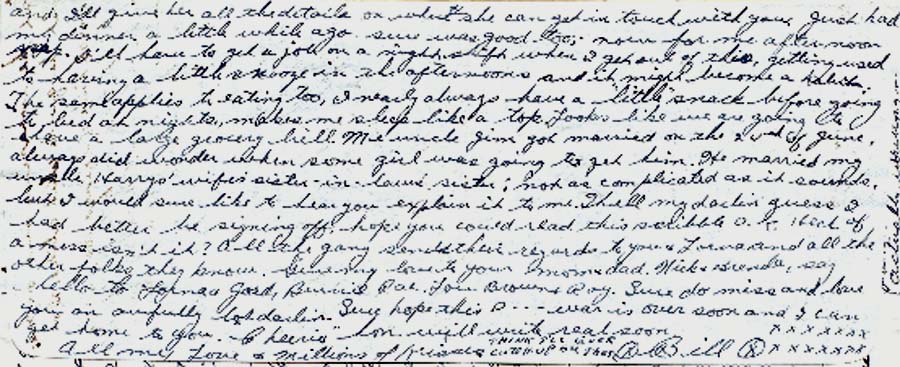 and I'll give her all the details on what she can get in touch with you. Just had
my dinner a little while ago. sure was good too; now for me afternoon
nap. I'll have to get a job on a night shift when I get out of this, getting used
to having a little snooze in the afternoons and it might become a habit.
The same applies to eating too, I nearly always have a "little" snack before going
to bed on nights, makes me sleep like a top. Looks like we are going to
have a large grocery bill. My uncle Jim got married on the 2nd of June,
always did wonder when some girl was going to get him. He married my
uncle Harry's wife's sister-in-laws' sister; not as complicated as it sounds,
but I would sure like to hear you explain it to me. Well my darlin guess I
had better be signing off. hope you could read this scribble O.K. Heck of
a mess isn't it? All the gang send their regards to you & Lorna and all the
other folks they know. Give my love to your mom & dad, Nick & Brenda, say
hello to Lorna & Gord, Bernice Rae, Lou Brown & Roy. Sure do miss and love
you an awfully lot darlin. Sure hope this D---- war is over soon and I can
get home to you. "Cheerio" hon will write real soon
x x x x x x x
All my Love & Millions of Kisses
THINK I'LL EVER
CATCH UP ON THESE
Bill
x x x x x x x